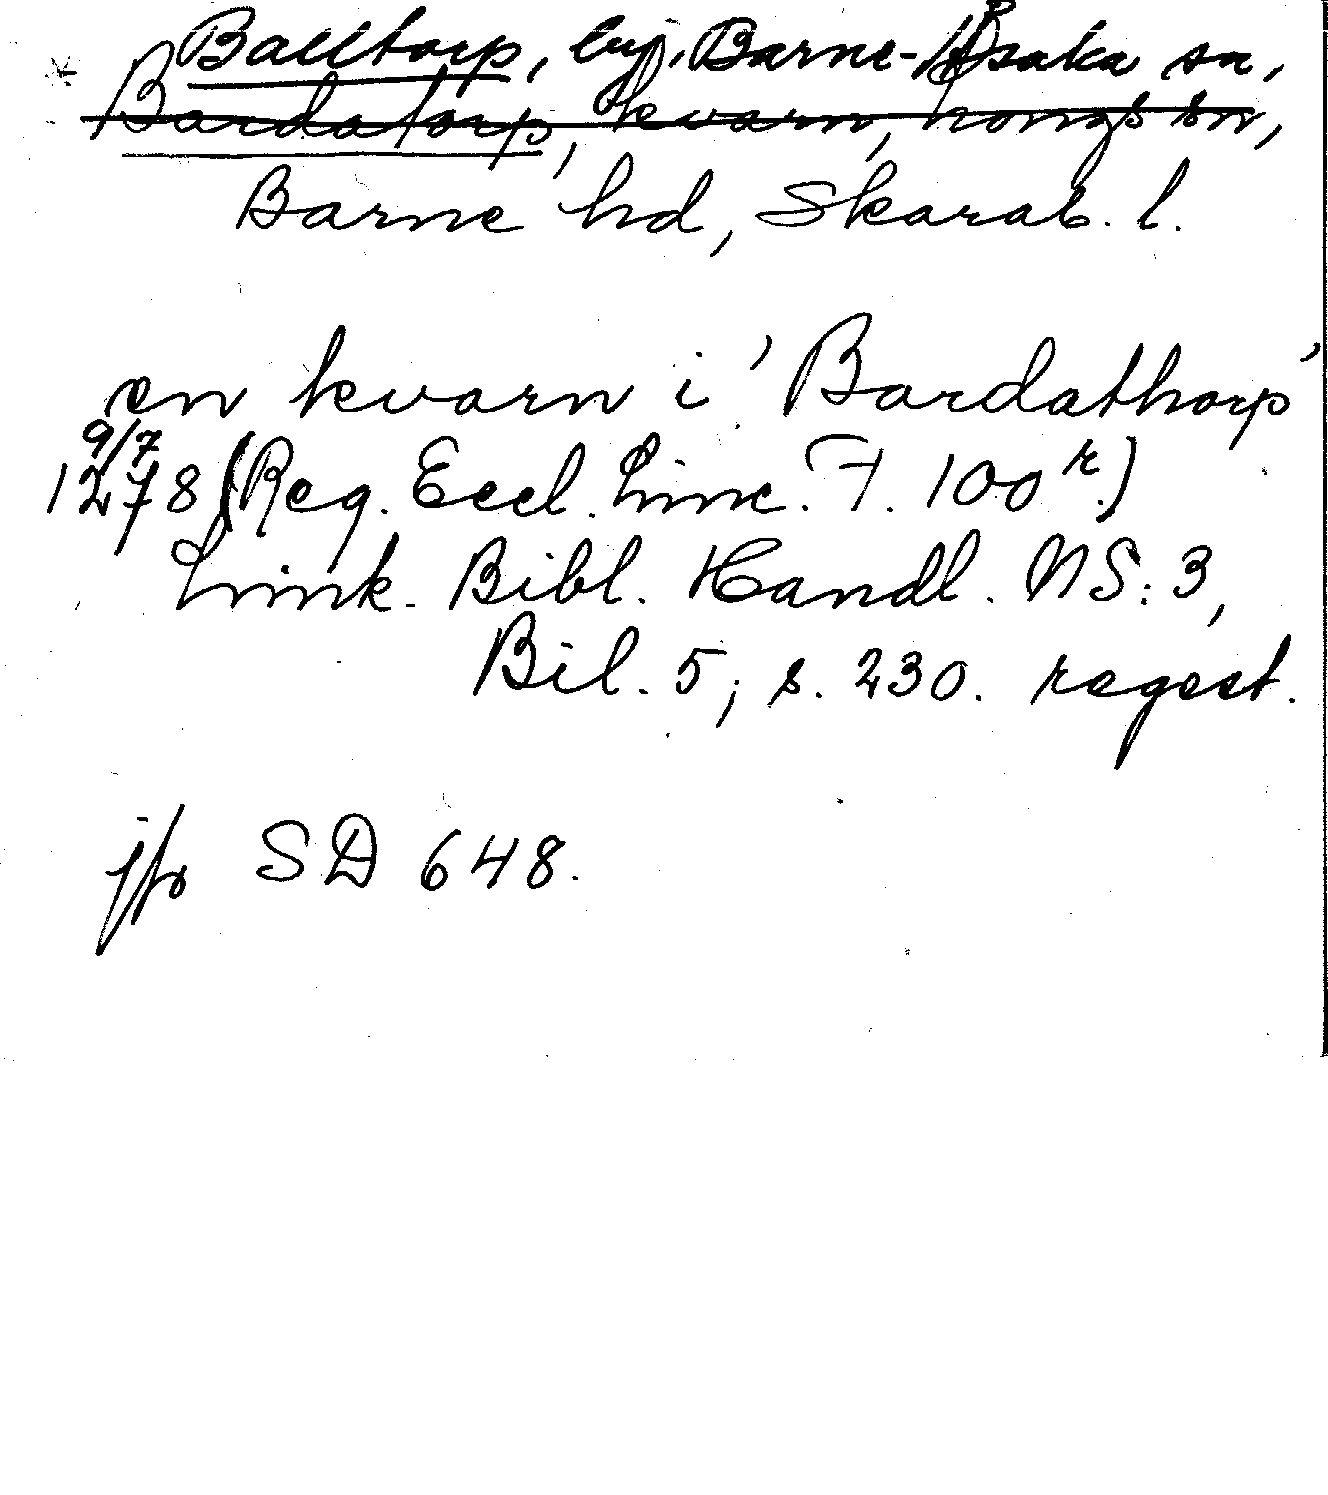 Balltorp, by, Barne-Åsaka sn,
Bardatorp, kvarn, Longs sn,
Barne hd, Skarab. l.
en kvarn i 'Bardathorp'
9/7
1278 (Reg. Eccl. Linc. F. 100 r.)
Link. Bibl. Handl. NS: 3,
Bil. 5, s. 230. regest.
jfr SD 648.